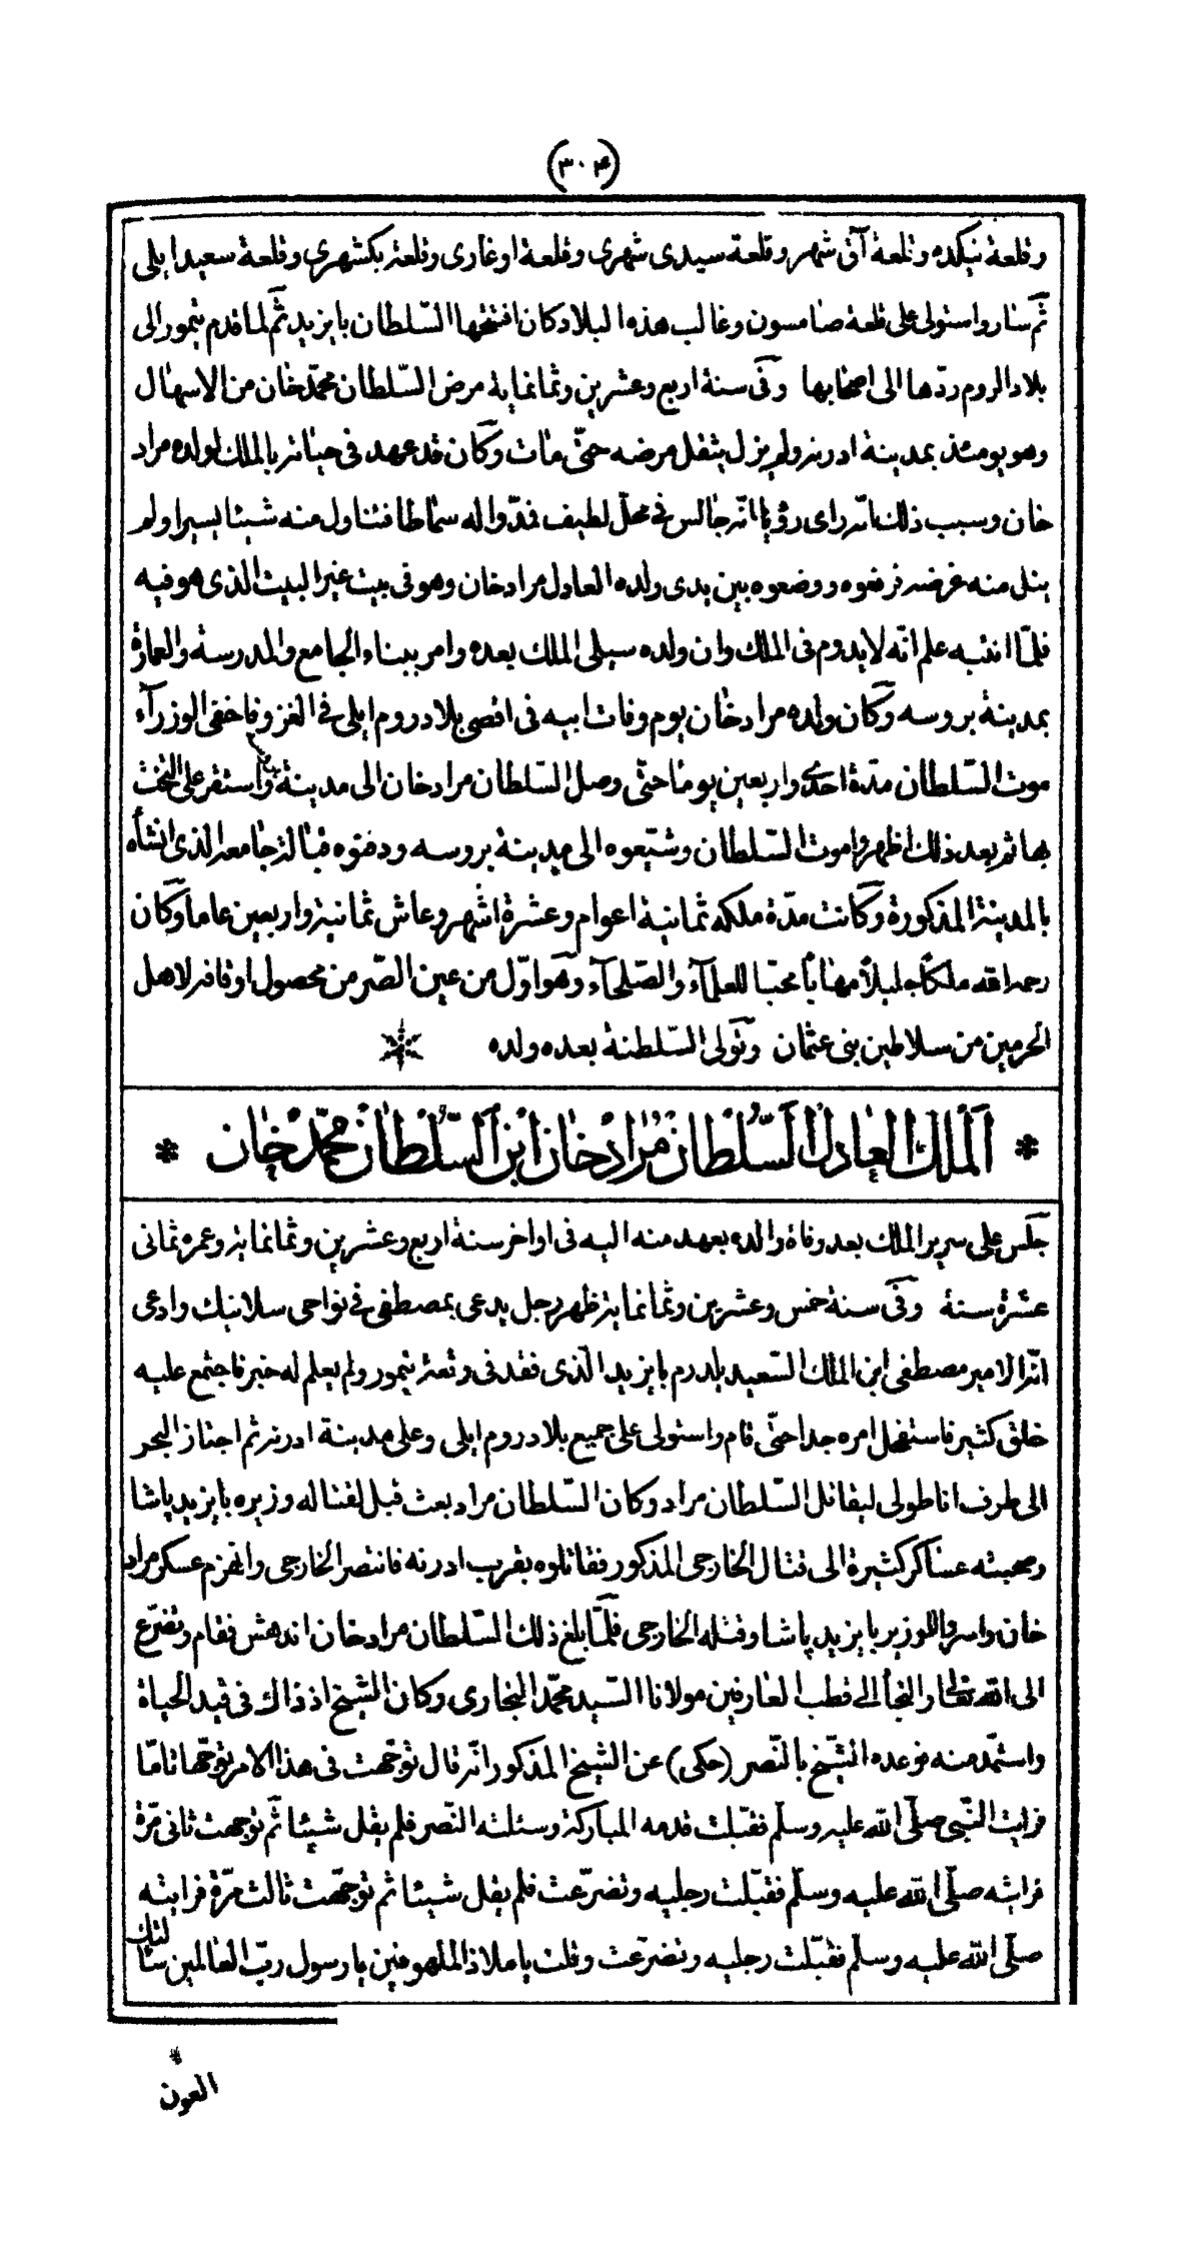 (٣٠٤)
وقلعة نيكده وقلعة آق شهر وقلعة سيدى شهرى وقلعة اوغارى وقلعة بكشهرى وقلعة سعيد ايلى
ثم سار واستولى على قلعة صامسون وغالب هذه البلاد كان افتتحها السلطان بايزيد ثم لما قدم تيمور الى
بلاد الروم ردّها الى اصحابها وفى سنة اربع وعشرين وثمانماية مرض السلطان محمد خان من الاسهال
وهو يومئذ بمدينة ادرنه ولم يزل يثقل مرضه حتّى مات وكان قد عهد فى حياته بالملك لولده مراد
خان وسبب ذلك انّه راى رؤيا انّه جالس فى محلّ لطيف فمدّوا له سماطا فتناول منه شيئا يسيرا ولم
ينل منه غرضه فرفعوه ووضعوه بين يدى ولده العادل مراد خان وهو فى بيت غير البيت الذى هو فيه
فلمّا انتبه علم انّه لا يدوم فى الملك وان ولده سيلى الملك بعده وامر ببناء الجامع والمدرسة والعمارة
بمدينة بروسه وكان ولده مراد خان يوم وفات ابيه فى اقصى بلاد روم ايلى فى الغزو فاخفى الوزرآء
موت السّلطان مدّة احدى واربعين يوما حتّى وصل السّلطان مراد خان الى مدينة واستقر على التخت
بها ثم بعد ذلك اظهروا موت السّلطان وشيّعوه الى مدينة بروسه ودفنوه قبالة جامعه الذى انشأه
بالمدينة المذكورة وكانت مدّة ملكه ثمانية اعوام وعشرة اشهر وعاش ثمانية واربعين عاما وكان
رحمه الله ملكاً جليلاً مهاباً محبّا للعلمآء والصّلحآء وهو اوّل من عين الصّر من محصول اوقافه لاهل
الحرمين من سلاطين بنى عثمان وتولى السّلطنة بعده ولده *
* اَلْمَلِكُ الْعَادِلُ اَلسُّلْطَانُ مُرَادْخَان ابْنُ السُّلْطَانْ مُحَمَّدْ خَان *
جلس على سرير الملك بعد وفاة والده بعهد منه اليه فى اواخر سنة اربع وعشرين وثمانماية وعمره ثمانى
عشرة سنة وفى سنة خمس وعشرين وثمانماية ظهر رجل يدعى بمصطفى فى نواحى سلانيك وادعى
انّه الامير مصطفى ابن الملك السّعيد يلدرم بايزيد الّذى فقد فى وقعة تيمور ولم يعلم له خبر فاجتمع عليه
خلق كثير فاستفحل امره جدا حتّى قام واستولى على جميع بلاد روم ايلى وعلى مدينة ادرنه ثم اجتاز البحر
الى طرف اناطولى ليقاتل السّلطان مراد وكان السّلطان مراد بعث قبل لقتاله وزيره بايزيد پاشا
وصحبته عساكر كثيرة الى قتال الخارجى المذكور فقاتلوه بقرب ادرنه فانتصر الخارجى وانهزم عسكر مراد
خان واسروا الوزير بايزيد پاشا وقتله الخارجى فلمّا بلغ ذلك السّلطان مراد خان اندهش فقام وتضرّع
الى الله تعالى والتجأ الى قطب العارفين مولانا السّيد محمّد البخارى وكان الشيخ اذ ذاك فى قيد الحياة
واستمّد منه فوعده الشّيخ بالنّصر (حكى) عن الشيخ المذكور انّه قال توجّهت فى هذا الامر توجّها تامّا
فرايت النّبى صلّى الله عليه وسلّم فقبّلت قدمه المباركة وسئلته النّصر فلم يقل شيئا ثم توجهت ثانى مرّة
فرايته صلّى الله عليه وسلّم فقبّلت رجليه وتضرّعت فلم يقل شيئا ثم توجّهت ثالث مرّة فرايته
صلّى الله عليه وسلّم فقبّلت رجليه وتضرّعت وقلت يا ملاذ الملهوفين يا رسول ربّ العالمين سئالتك
العون